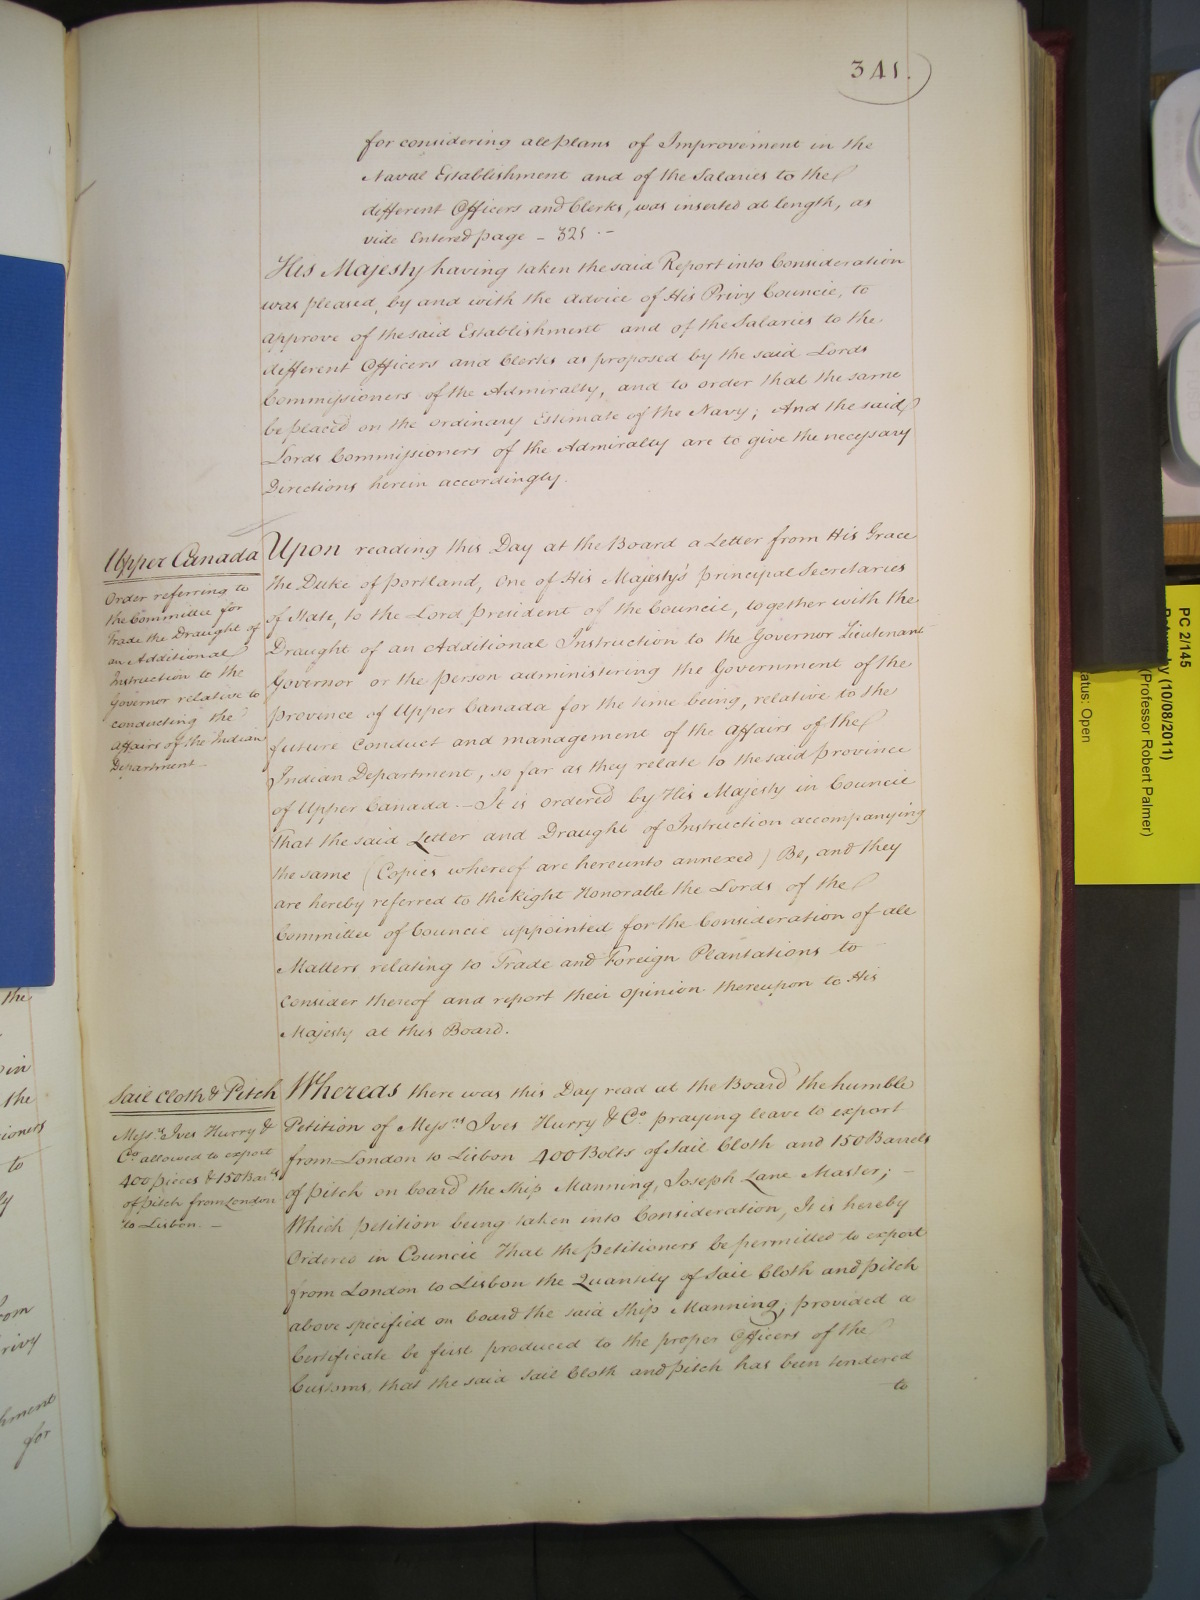 341.
for considering all plans of Improvement in the
Naval Establishment and of the Salaries to the
different Officers and Clerks, was inserted at length, as
vide Entered page - 321 -
His Majesty having taken the said Report into Consideration
was pleased, by and with the advice of His Privy Council, to
approve of the said Establishment and of the Salaries to the
different Officers and Clerks as proposed by the said Lords
Commissioners of the Admiralty, and to order that the same
be placed on the ordinary Estimate of the Navy; And the said
Lords Commissioners of the Admiralty are to give the necessary
Directions herein accordingly.
Upper Canada
Order referring to
the Committee for
Trade the Draught of
an Additional
Instruction to the
Governor relative to
conducting the
affairs of the Indian
Department
Upon reading this Day at the Board a Letter from His Grace
the Duke of Portland, One of His Majesty's principal Secretaries
of State, to the Lord President of the Council, together with the
Draught of an Additional Instruction to the Governor Lieutenant
Governor or the person administering the Government of the
Province of Upper Canada for the time being, relative to the
future Conduct and management of the affairs of the
Indian Department, so far as they relate to the said province
of Upper Canada - It is ordered by His Majesty in Council
That the said Letter and Draught of Instruction accompanying
the same (Copies whereof are hereunto annexed) Be, and they
are hereby referred to the Right Honorable the Lords of the
Committee of Council appointed for the Consideration of all
Matters relating to Trade and Foreign Plantations to
consider thereof and report their opinion thereupon to His
Majesty at this Board.
Sail Cloth & Pitch
Messrs. Ives Hurry &
Co. allowed to export
400 pieces & 150 Barls
of pitch from London
to Lisbon. -
Whereas there was this Day read at the Board the humble
Petition of Messrs. Ives Hurry & Co. praying leave to export
from London to Lisbon 400 Bolts of Sail Cloth and 150 Barrels
of pitch on board the Ship Manning, Joseph Lane Master; -
Which petition being taken into Consideration, It is hereby
Ordered in Council That the petitioners be permitted to export
from London to Lisbon the Quantity of Sail Cloth and pitch
above specified on board the said Ship Manning; provided a
Certificate be first produced to the proper Officers of the
Customs, that the said Sail Cloth and pitch has been tendered
to
the
in
the
to
for
PC 2/145
by (10/08/2011)
(Professor Robert Palmer)
atus: Open